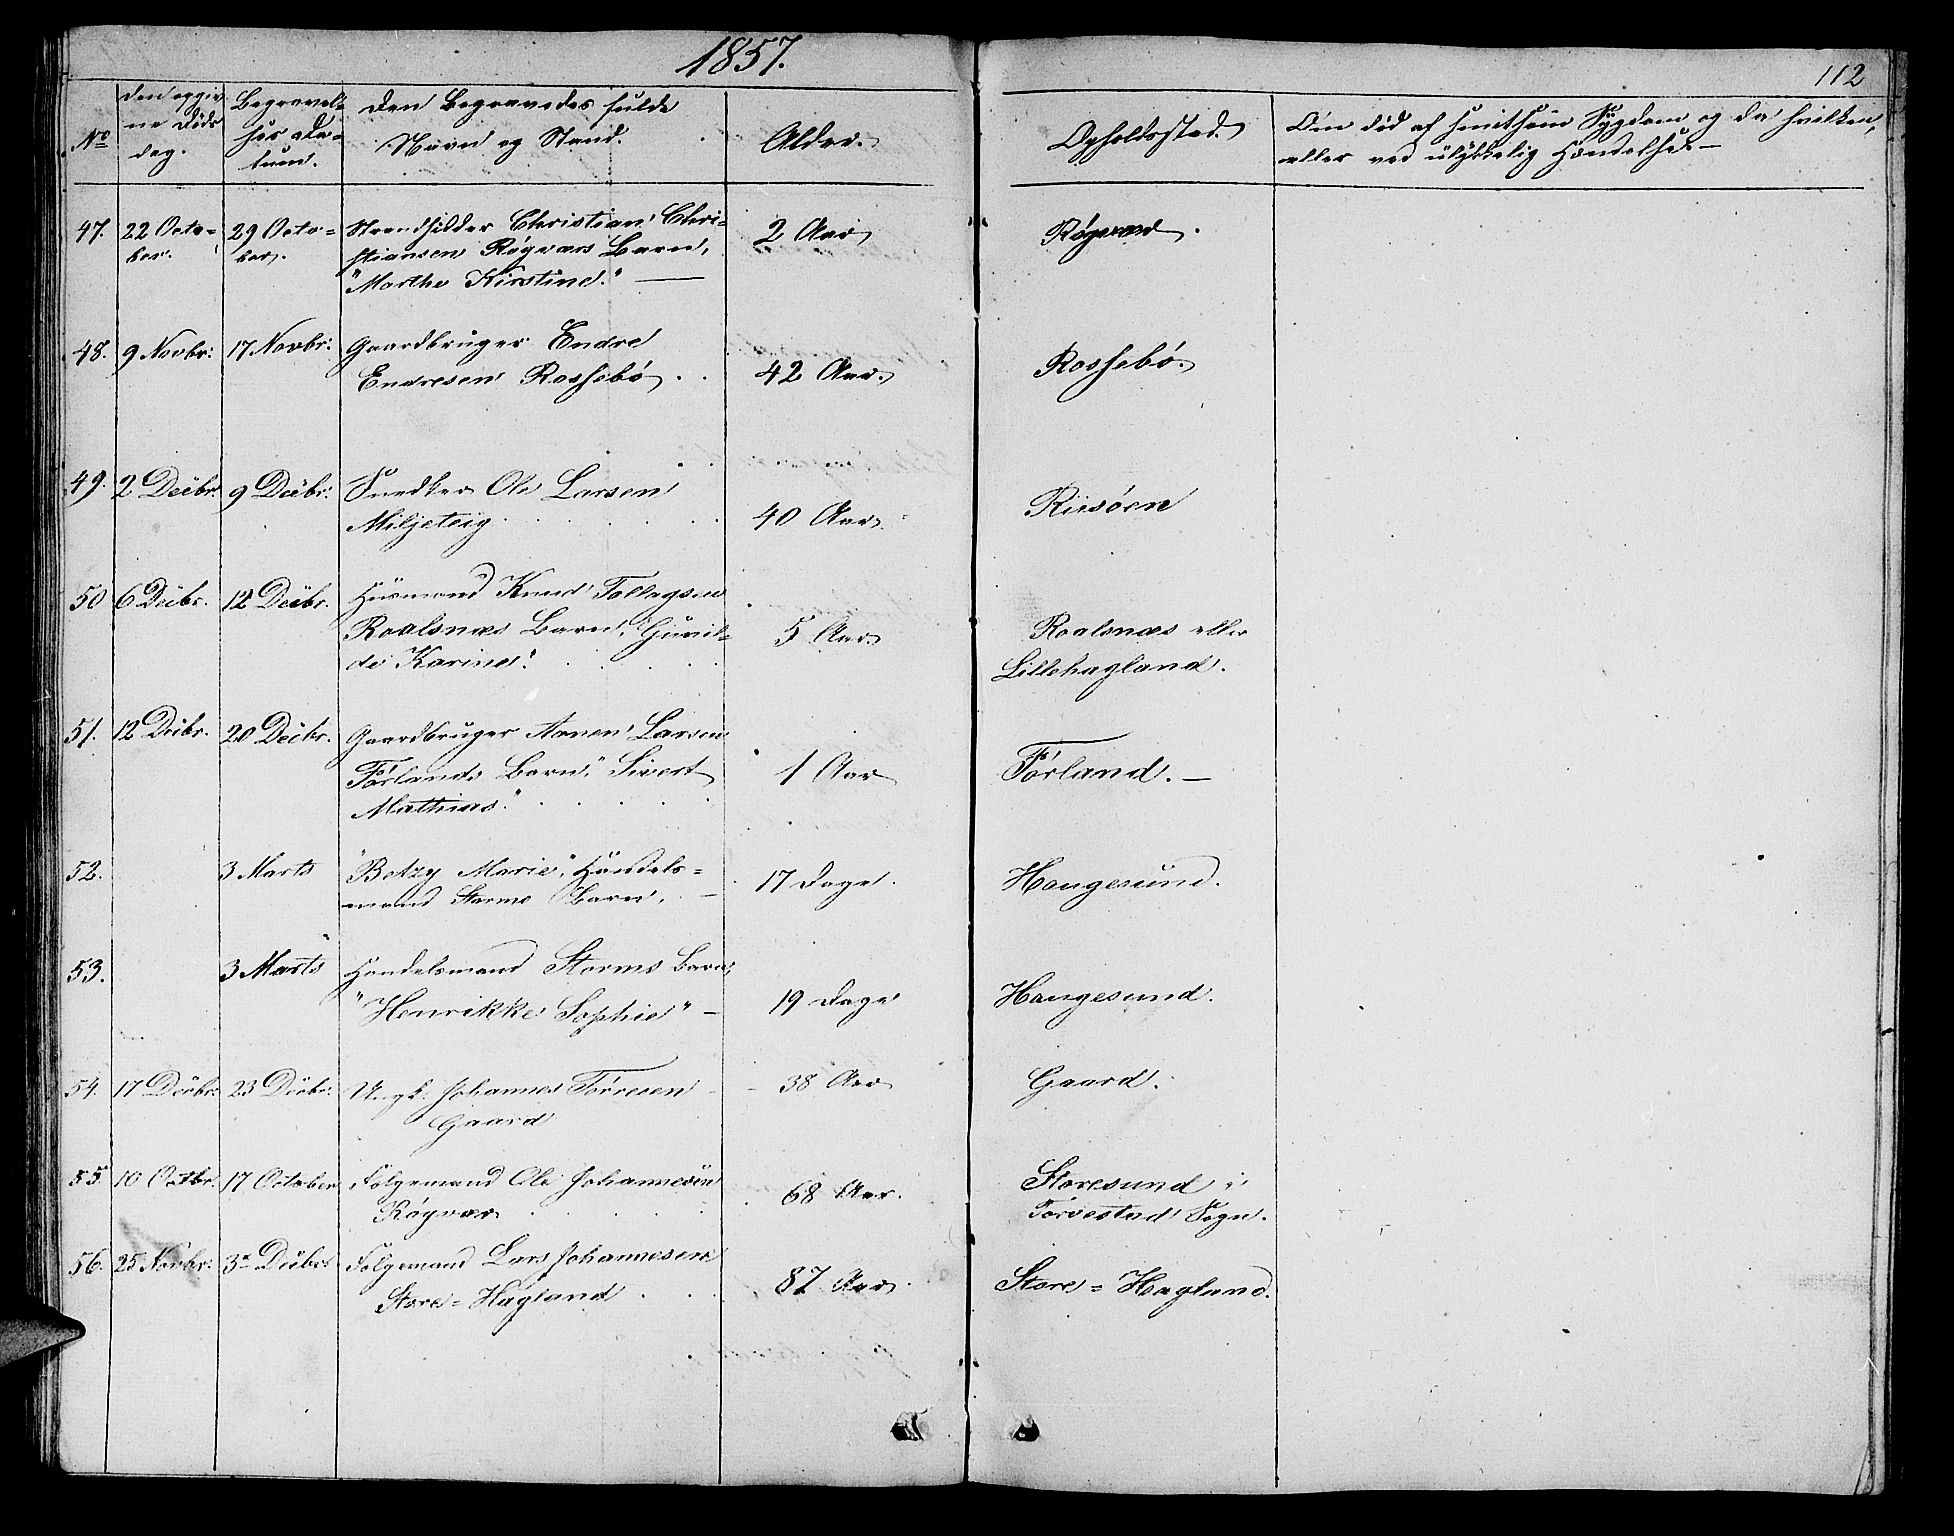 1857.
112
No
den opgiv-
ne Døds
dag.
Begravel-
ses Da-
tum.
Den Begravedes fulde
Navn og Stand.
Alder.
Opholdssted.
Om død af smitsom Sygdom og da hvilken,
eller ved ulykkelig Hændelse.—
47. 22 Octo=
ber.
29 Octo-
ber.
Strandsidder Christian Chri=
stiansen Røgværs Barn,
"Marthe Kirstine." —
2 Aar
Røgvær.
48. 9 Novbr: 17 Novbr: Gaardbruger Endre
Endresen Rossebø . .
42 Aar.
Rossebø.
49. 2 Decbr. 9 Decbr: Snedker Ole Larsen
Miljeteig
40 Aar.
Riisøen
50 6 Decbr. 12 Decbr. Huusmand Knud Tollagsen
Roalsnæs Barn, "Gunil-
de Karine."
5 Aar.
Roalsnæs eller
Lillehagland.
51. 12 Decbr. 20 Decbr. Gaardbruger Aanen Larsen
Førlands Barn, "Sivert
Mathias."
1 Aar
Førland. —
52. 3 Marts "Betzy Marie", Handels=
mand Storms Barn. —
17 Dage.
Haugesund.
53. 3 Marts Handelsmand Storms Barn,
"Henrikke Sophie" —
19 Dage
Haugesund.
54. 17 Decbr: 23 Decbr: Ungk. Johannes Tørresen
Gaard
38 Aar
Gaard.
55. 10 Octbr. 17 October Folgemand Ole Johannesen
Røgvær
68 Aar.
Storesund i
Torvestad Sogn.
56. 25 Novbr: 3 Decbr Folgemand Lars Johannesen
Store=Hagland
87 Aar.
Store=Hagland.